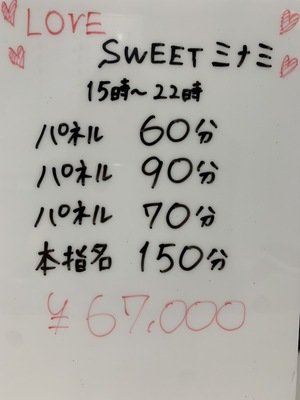 LOVE
SWEETミナミ
15時〜22時
パネル 60分
パネル 90分
パネル 70分
本指名 150分
¥67.000